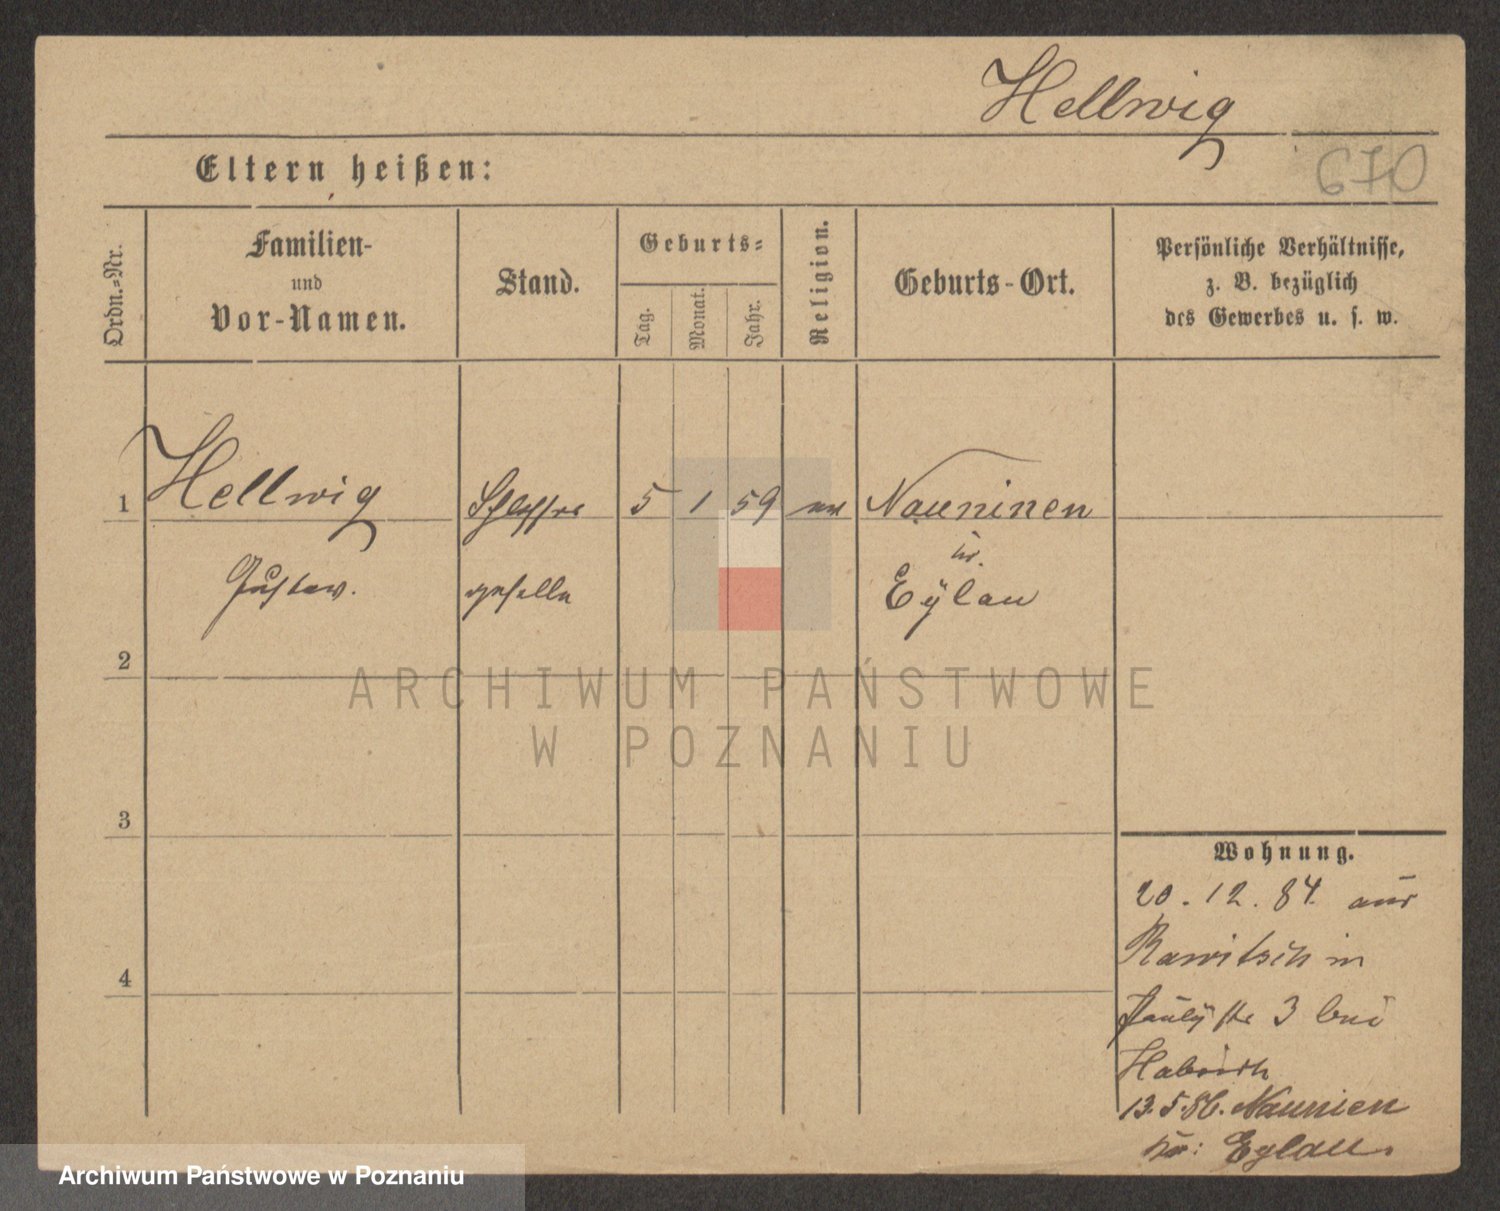 Hellwig
670
Eltern heißen:
Ordn.-Nr.
Familien-
und
Vor-Namen.
Stand.
Geburts-
Tag.
Monat.
Jahr.
Religion.
Geburts-Ort.
Persönliche Verhältnisse,
z. B. bezüglich
des Gewerbes u. s. w.
1 Hellwig Schlosser 5 1 59 Nauninen
Kr.
Gustav. geselle Eylau
2
ARCHIWUM PAŃSTWOWE
W POZNANIU
3
4
Wohnung.
20. 12. 84. aus
Rawitsch in
3 bei
13. 5. 86. Naunien
Kr: Eylau.
Archiwum Państwowe w Poznaniu